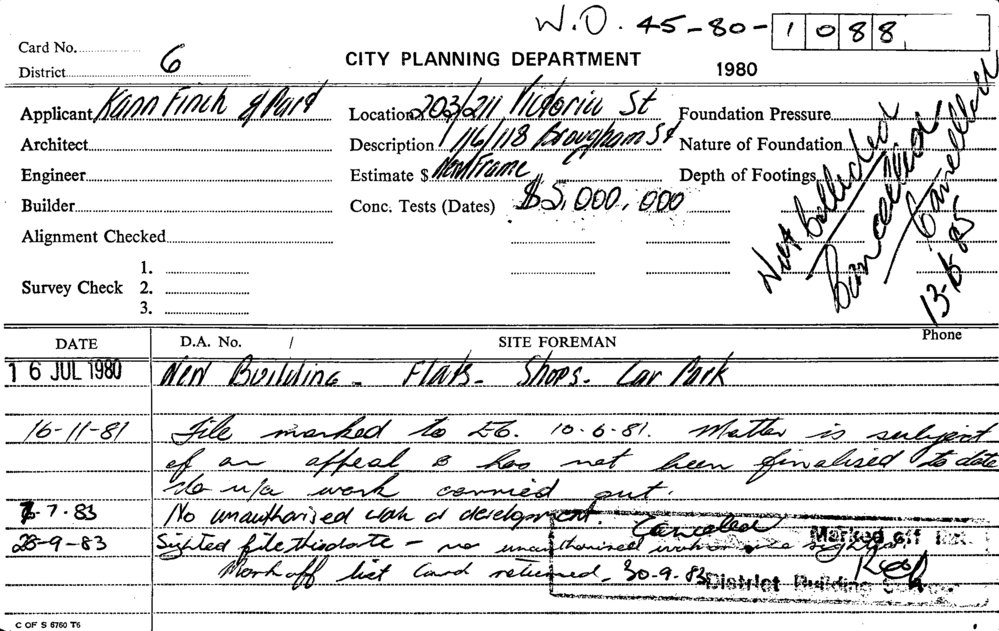 W.O. 45-80-1088
Card No.
District 6
CITY PLANNING DEPARTMENT
1980
Applicant Kann Finch & Part
Location 203/211 Victoria St
Foundation Pressure
Architect
Description 116/118 Brougham St
Nature of Foundation
Engineer
Estimate $ New Frame
Depth of Footings
Builder
Conc. Tests (Dates) $5,000,000
Alignment Checked
Not Collected
Cancelled
Cancelled
13-6-85
Survey Check
1.
2.
3.
DATE
D.A. No. /
SITE FOREMAN
Phone
16 JUL 1980
New Building - Flats - Shops - Car Park
16-11-81 File marked to E6. 10-6-81. Matter is subject
of an appeal & has not been finalised to date
No u/a work carried out.
7-83 No unauthorised work or development.
Cancelled
28-9-83 Sighted file this date - no unauthorised work
Marked off
Mark off list Card returned. 30-9-83
District Building
C OF S 6760 T6